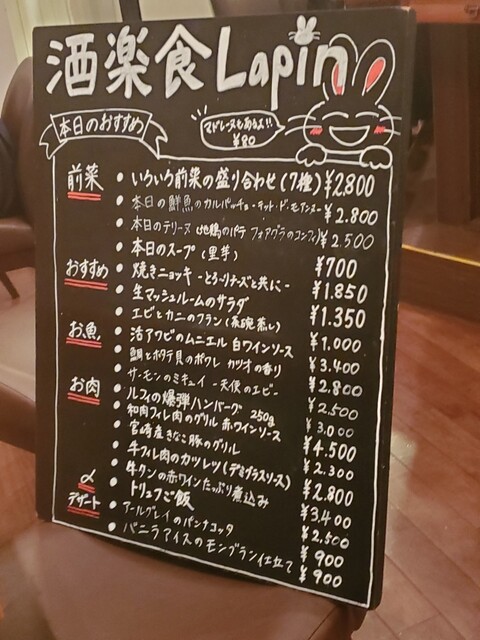 酒楽食Lapin
本日のおすすめ
マドレーヌもあるよ!!
¥80
前菜
・いろいろ前菜の盛り合わせ(7種) ¥2,800
・本日の鮮魚のカルパッチョ ¥2.800
・本日のテリーヌ 地鶏のパテ フォアグラのコンフィ ¥2500
・本日のスープ(里芋) ¥700
おすすめ
・焼きニョッキ -とろ〜りチーズと共に- ¥1.850
・生マッシュルームのサラダ ¥1.350
・エビとカニのフラン(茶碗蒸し) ¥1,000
お魚
・活アワビのムニエル 白ワインソース ¥3.400
・鯛とホタテ貝のポワレ カツオの香り ¥2800
・サーモンのミキュイ -天使のエビ- ¥2500
お肉
・ルフィの爆弾ハンバーグ 250g ¥3.000
・和肉フィレ肉のグリル 赤ワインソース ¥4.500
・宮崎産きなこ豚のグリル ¥2.300
・牛フィレ肉のカツレツ(デミグラスソース) ¥2.800
・牛タンの赤ワインたっぷり煮込み ¥3,400
〆
・トリュフご飯 ¥2,500
デザート
・アールグレイのパンナコッタ ¥900
・バニラアイスのモンブラン仕立て ¥900